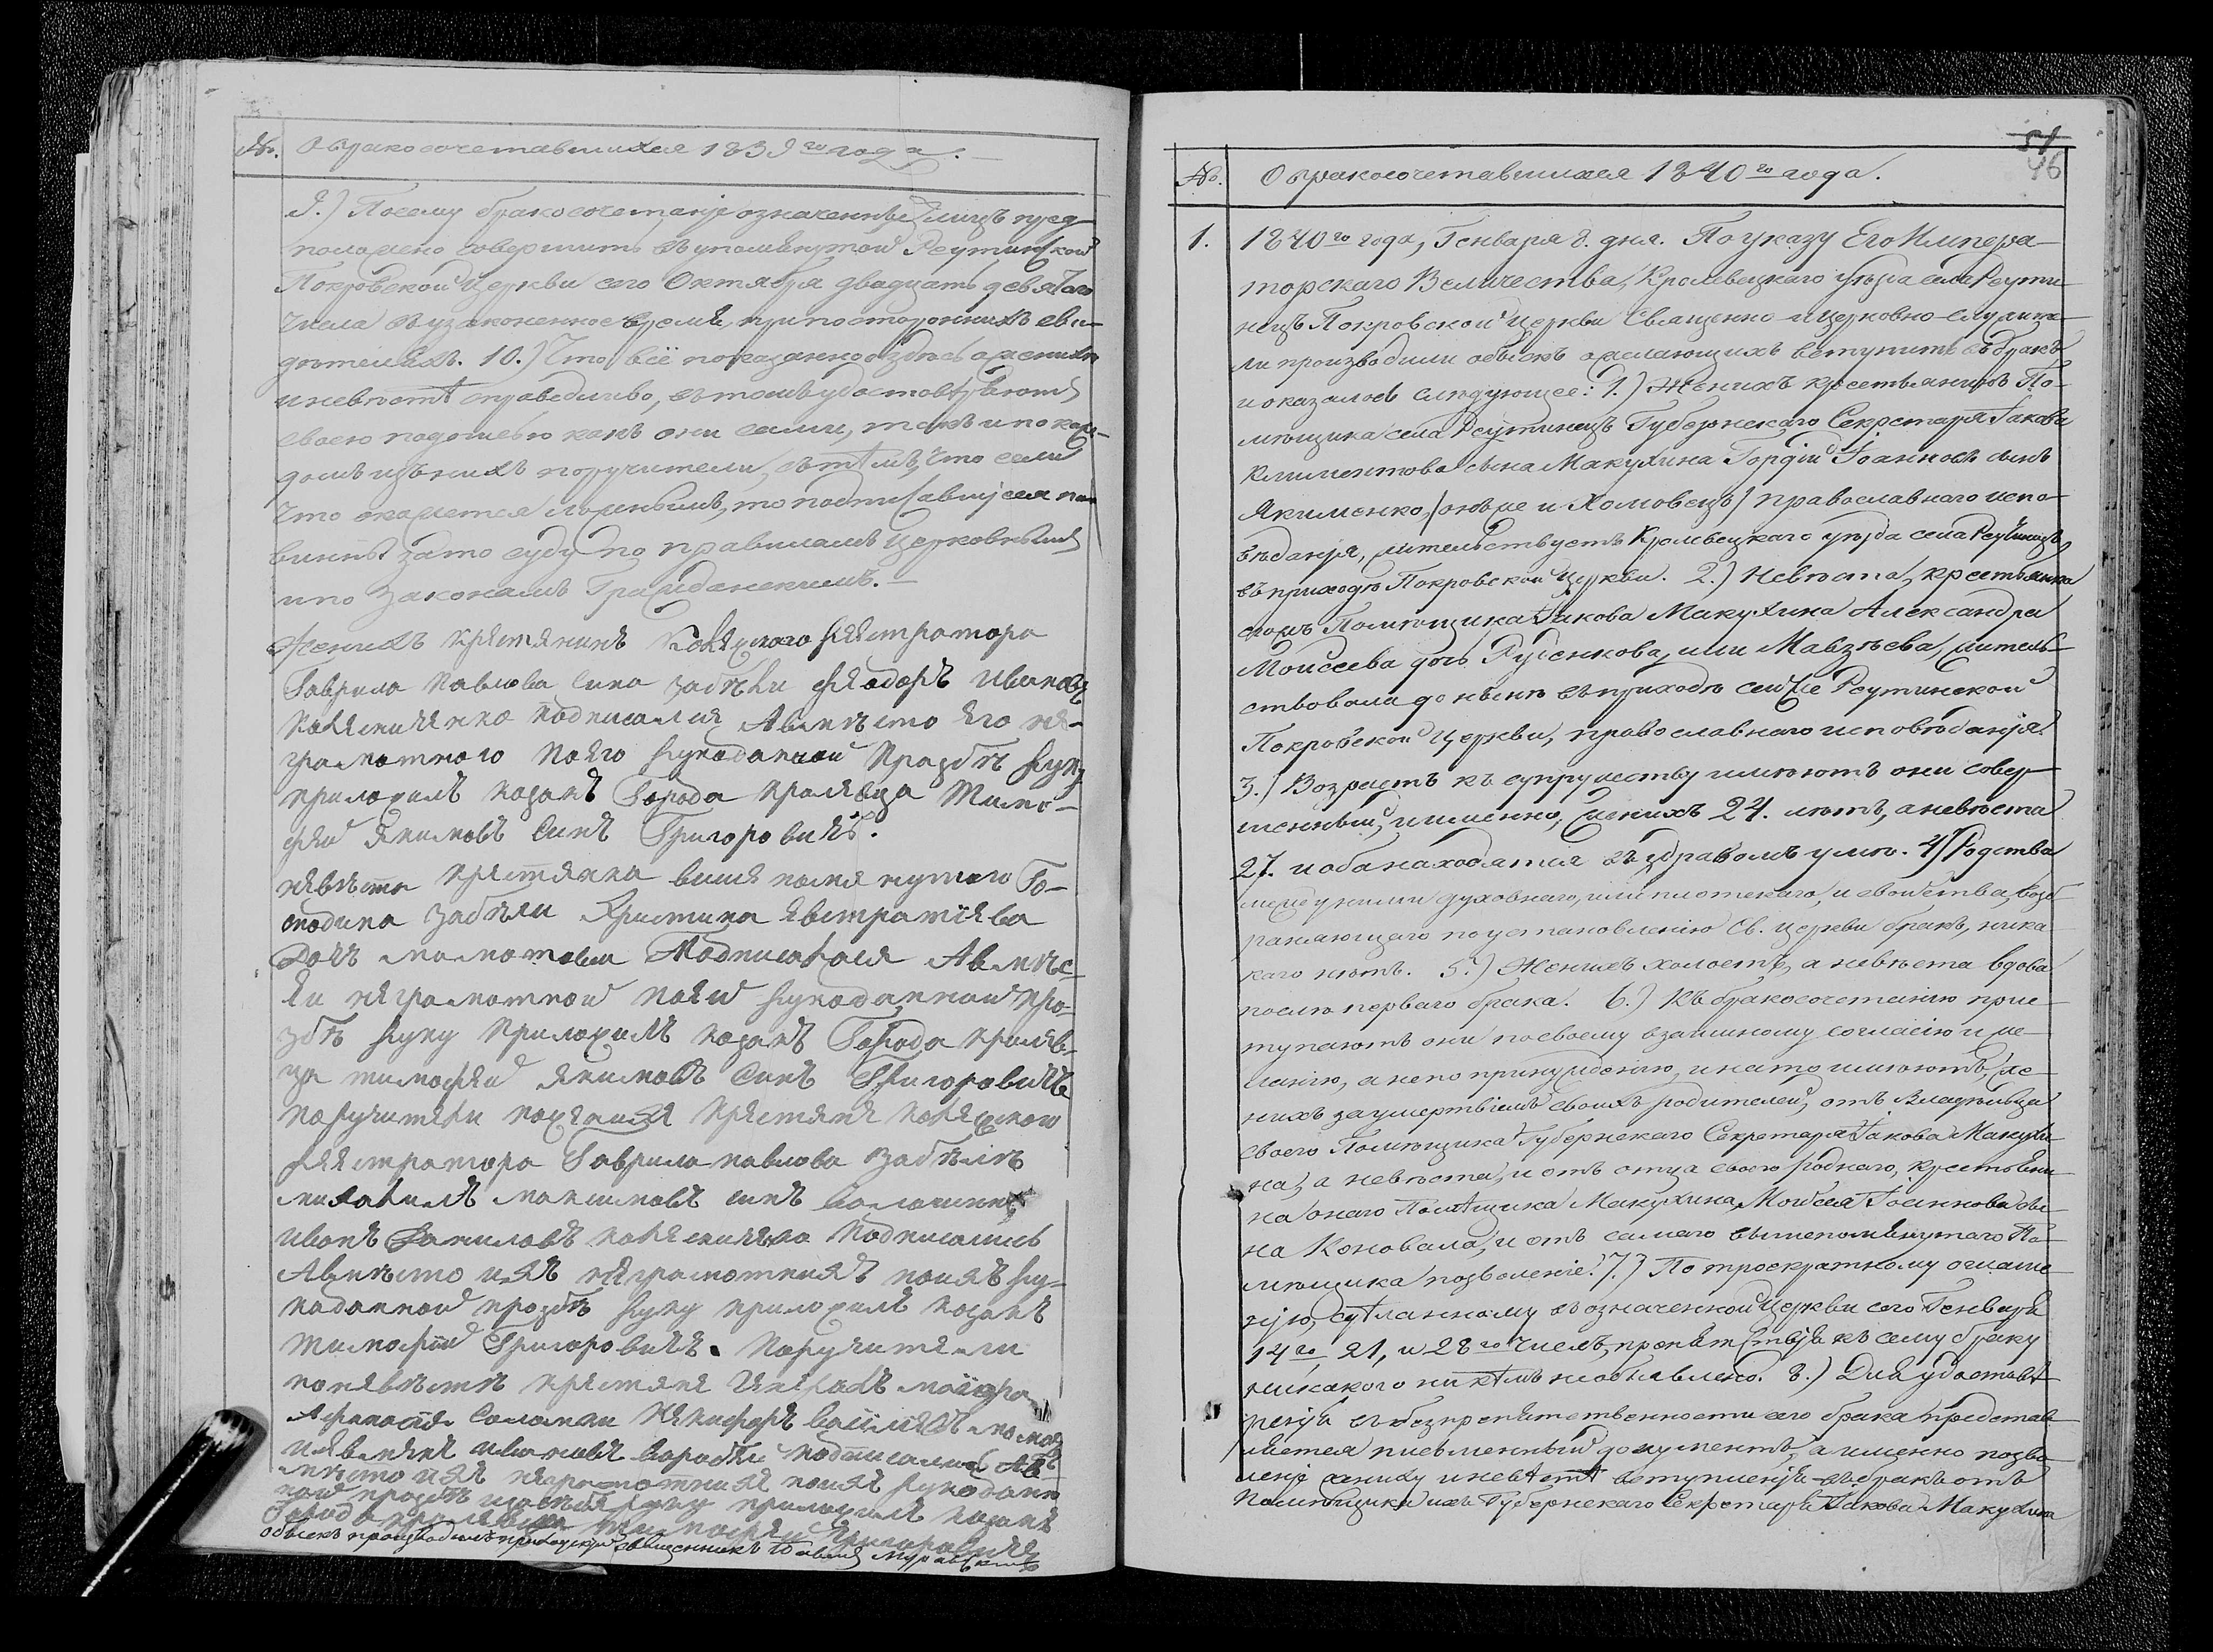 №. О бракосочетавшихся 1839го года.
9.) Посему бракосочетанїе означенныхъ лицъ пред-
положено совершить въ упомянутой Реутинской
Покровской Церкви сего Октября двадцать девятого
числа въ узаконенное время, при постороннихъ сви-
дѣтеляхъ. 10.) Что всё показанное здѣсь о женихѣ
и невѣстѣ справедливо, въ томъ удостовѣряютъ
своею подписью какъ они сами, такъ и по каж-
домъ изъ нихъ поручители, съ тѣмъ, что если
что окажется ложнымъ, то подписавшїеся по-
винны за то суду по правиламъ Церковнымъ
и по законамъ Гражданскимъ.
Женихъ крестянинъ Колежского регестратора
Гаврила Павлова сина Забѣли Феодоръ Ивановъ
подписался Авместо его не-
грамотного поего рукоданой прозбѣ руку
приложилъ козакъ Города Кролевца Тимо-
фей Якимовъ Синъ Григоровичъ.
невѣста крестянка више помянутого Го-
сподина Забѣли Христина Евстратїева
Дочъ Подписалася Авмѣс-
то еи неграмотной поеи рукоданной про-
збѣ руку приложилъ козакъ Города Кролев-
ца Тимофей Якимовъ Синъ Григоровичъ
поручители пожениху крестяне колежского
регестратора Гаврила павлова Забѣли
михаилъ максимовъ синъ
иванъ Даниловъ подписались
Авмѣсто ихъ неграмотнихъ поихъ ру-
коданной прозбѣ руку приложилъ козакъ
Тимофей Григоровичъ. Поручители
поневѣстѣ крестяне
подписались Ав-
мѣсто ихъ неграмотнихъ поихъ рукодан
ной прозбѣ руку приложилъ козакъ
Города Кролевца Тимофей Григоровичъ
Обыскъ производилъ приходскїй священникъ
51
46
№. О бракосочетавшихся 1840го года.
1. 1840го года, Генваря 8. дня. По указу Его Импера-
торскаго Величества, Кролевецкаго уѣзда села Реути-
нецъ Покровской Церкви Священно- и церковно-служите-
ли производили обыскъ о желающихъ вступить въ бракъ
и оказалось слѣдующее: 1.) Женихъ крестьянинъ По-
мѣщика села Реутинецъ Губернскаго Секретаря Їакова
Климентова сына Макухина Гордїй Їоанновъ сынъ
Якименко, /онъ же и Холмовецъ/ православнаго испо-
вѣданїя, жительствуетъ Кролевецкаго уѣзда села Реутинецъ
въ приходѣ Покровской Церкви. 2.) Невѣста, крестьянка
тогожъ Помѣщика Їакова Макухина Александра
Мойсеева дочь Руденкова, или Мавзѣева, житель-
ствовала донынѣ въ приходѣ сей же Реутинской
Покровской Церкви, православнаго исповѣданїя.
3.) Возрастъ къ супружеству имѣютъ они совер-
шенный, и именно, Женихъ 24. лѣтъ, а невѣста
27. и оба находятся въ здравомъ умѣ. 4) Родства
между ними духовнаго, или плотскаго, и свойства, возб-
раняющаго по установленїю Св. Церкви бракъ, ника-
каго нѣтъ. 5.) Женихъ холостъ, а невѣста вдова
послѣ перваго брака. 6.) Къ бракосочетанїю прис-
тупаютъ они по своему взаимному согласїю и же-
ланїю, а не по принужденїю, и на то имѣютъ, же-
нихъ за умертвїемъ своихъ родителей, отъ владѣльца
своего Помѣщика Губернскаго Секретаря Їакова Макухи-
на, а невѣста, и отъ отца своего роднаго, крестьяни-
на онаго Помѣщика Макухина, Мойсея Їоаннова сы-
на Коновала, и отъ самаго вышепомянутаго По-
мѣщика позволенїе. 7.) По троекратному оглаше-
нїю, сдѣланному въ означенной Церкви сего Генваря
14го 21, и 28го числъ, препятствїя къ сему браку
никакого никѣмъ необъявлено. 8.) Для удостовѣ-
ренїя въ безпрепятственности сего брака представ-
ляется письменный документъ, а именно позво-
ленїе жениху и невѣстѣ вступленїя въ бракъ отъ
Помѣщика ихъ Губернскаго Секретаря Їакова Макухина